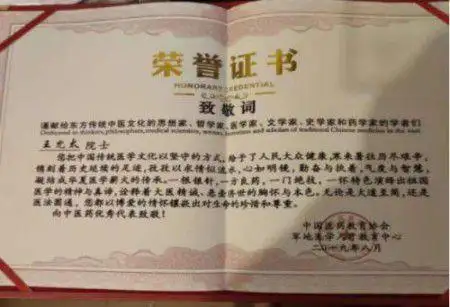 荣誉证书
HONORARY CREDENTIAL
致敬词
谨献给东方传统中医文化的思想家、哲学家、医学家、文学家、史学家和药学家的学者们
Dedicated to thinkers, philosophers, medical scientists, writers, historians and scholars of traditional Chinese medicine in the east.
王允太 院士
您把中国传统医学文化以坚守的方式,给予了人民大众健康,寒来暑往历尽艰辛,
镌刻着历史延续的足迹,孜孜以求情似流水,心如明镜,勤奋与执着,气度与智慧,
凝结成华夏医学薪火的传承。一根银针,一方良药,一门绝技,一怀特色演绎出祖国
医学的精神与真谛,诠释着大医精诚、悬壶济世的胸怀与本色。无论是大道至简,还是
医法圆通,您都以博爱的情怀镶嵌出对生命的珍惜和尊重。
向中医药优秀代表致敬!
中国医药教育协会
草地医学人才教育中心
二〇一九年八月